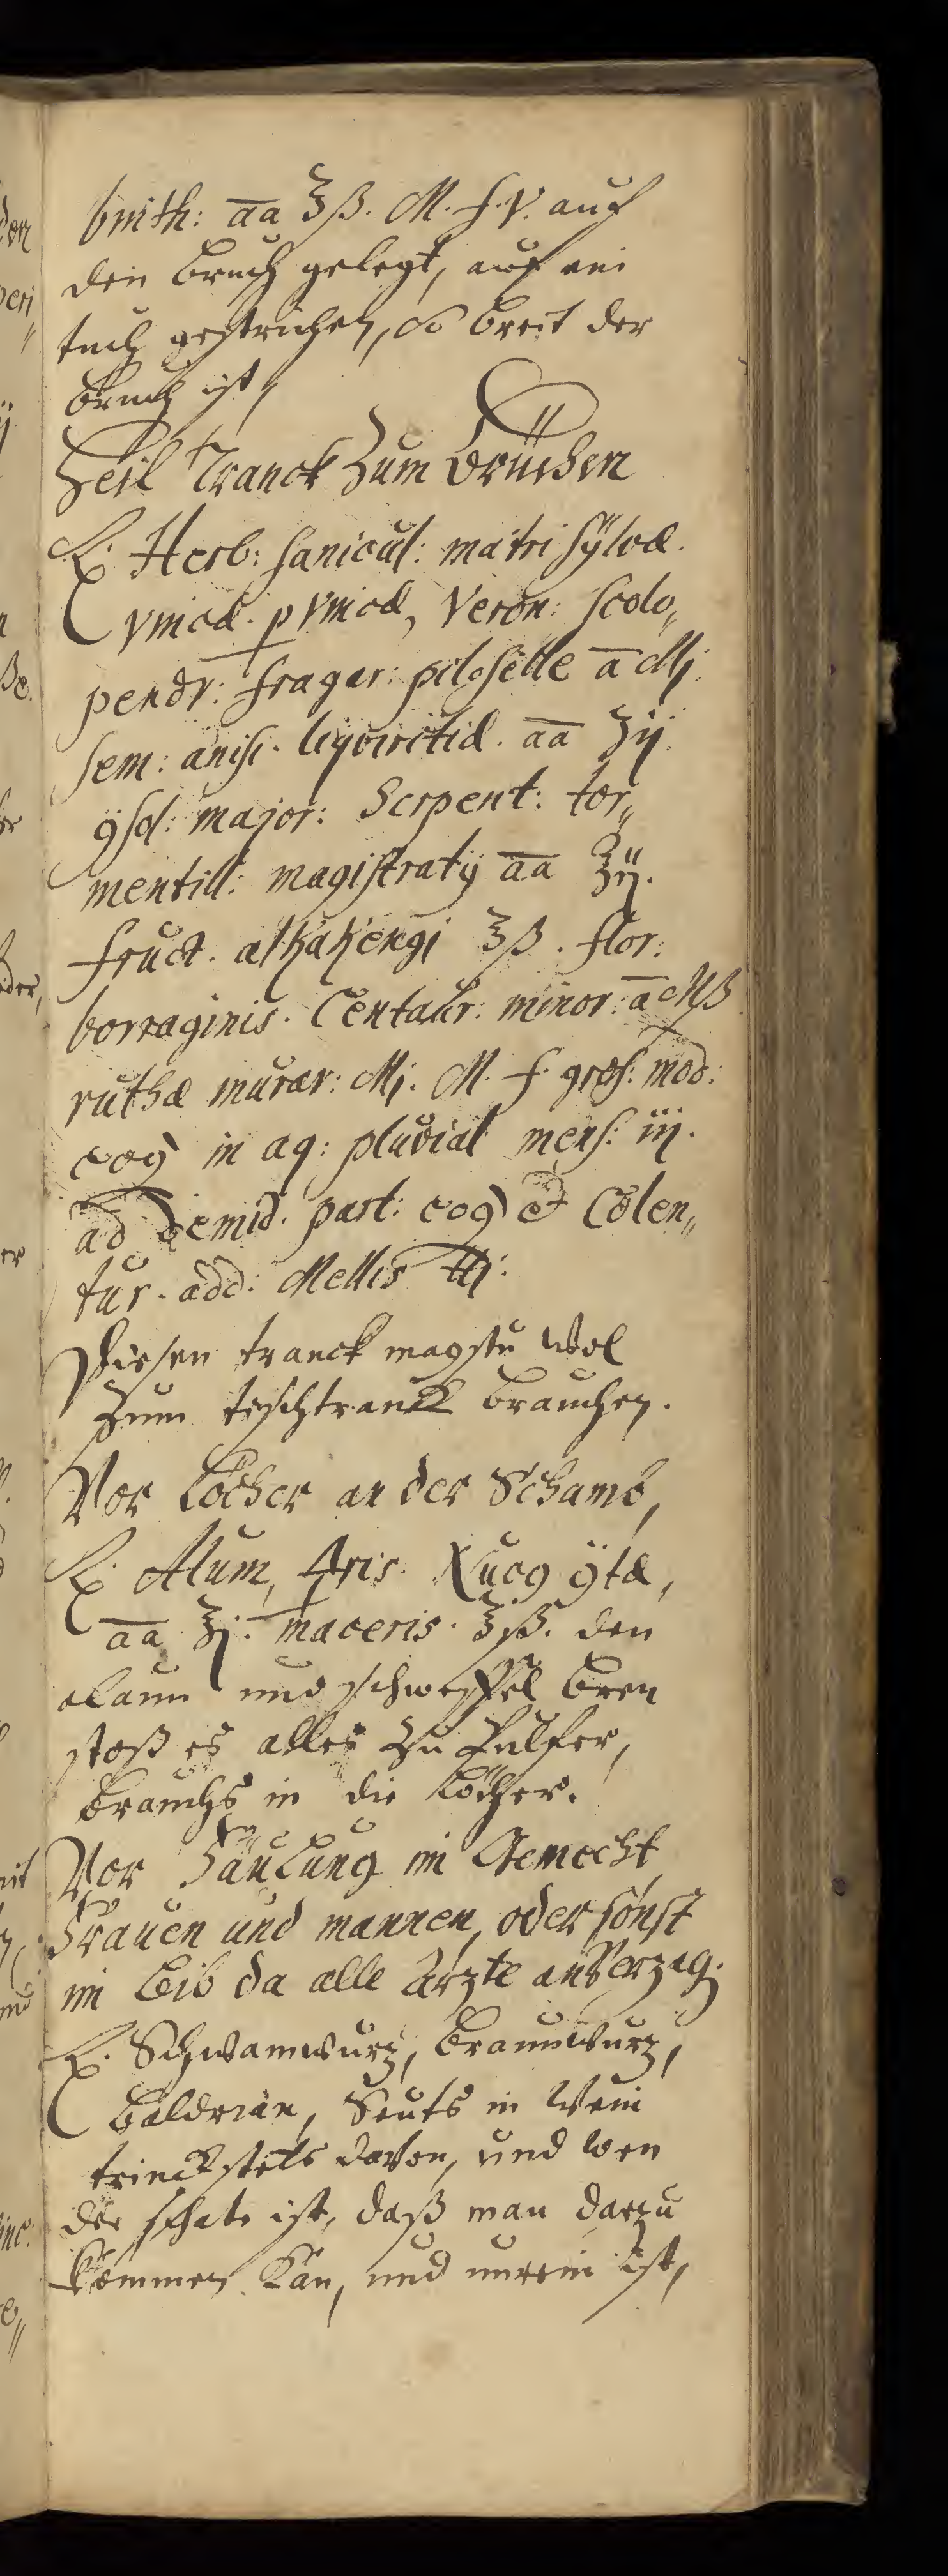 binth: āā ʒß. M. f. V. auf
den bruch gelegt, auf ein
tuch gestrichen, so breit der
bruch ist,
Heil Tranck Zum Brüchen
℞. Herb: sanicul: matri sÿlvæ.
vincæ. pvincæ, Veron: scolo„
pendr: fragar: pilosellæ ā Mj.
sem: anisi. liqviritiæ. āā ʒij.
major: Serpent: tor„
mentill: magistratÿ āā ʒij.
fruct. alkakengi ʒß. flor:
borraginis. Centaur: minor: ā Mß
ruthæ murar: Mj. M. f. gros: mod:
coq in aq: pluvial mens: iij.
ad demid. part: coq et Colen„
tur. add: Mellis ℔j.
Diesen tranck magstu wol
zum tischtranck brauchen.
Vor Löcher an der Schamb,
℞. Alum,
āā ʒj. maceris. ʒiß. den
alaun und schweffel bren
stoß es alles zu Pulfer,
brauchs in die Löcher.
Vor Fäulung im Gemecht
Frauen und mannen, oder sonst
im Leib da alle Ärzte an verzag.
℞. Schwamwurz, braunwurz,
Baldrian, Seuts in Wein
trinck stets davon, und wen
der schade ist, daß man darzu
kommen kan, und unrein ist,